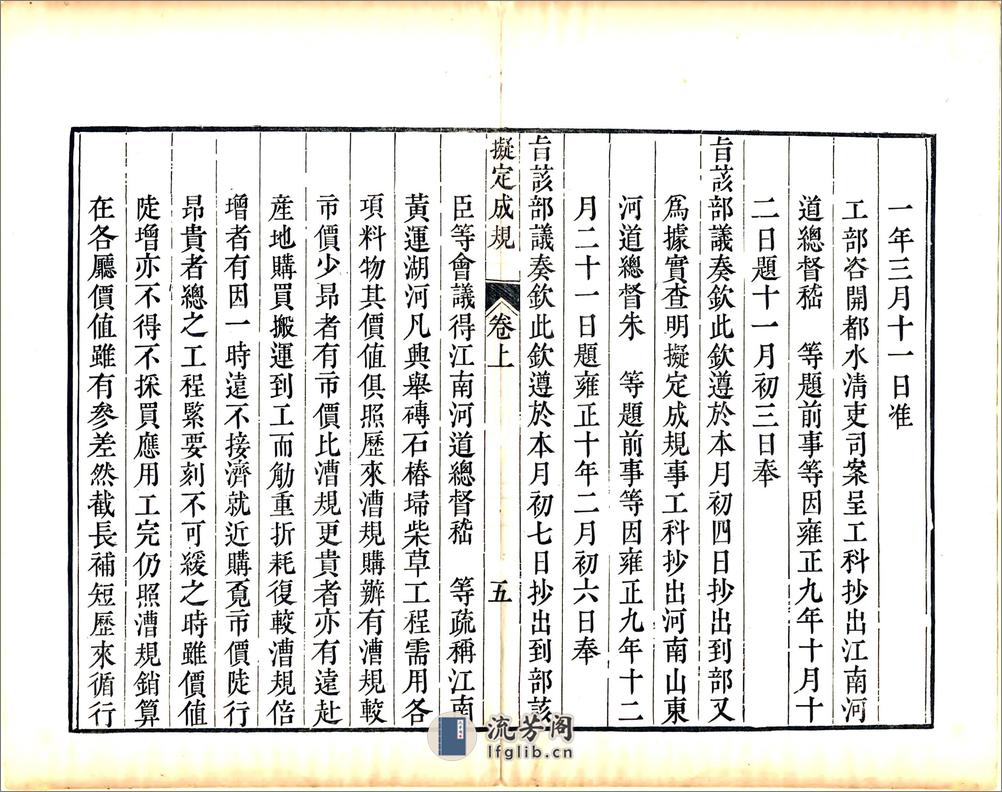 一年三月十一日准
工部咨開都水清吏司案呈工科抄出江南河
道總督嵇　等題前事等因雍正九年十月十
二日題十一月初三日奉
旨該部議奏欽此欽遵於本月初四日抄出到部又
爲據實查明擬定成規事工科抄出河南山東
河道總督朱　等題前事等因雍正九年十二
月二十一日題雍正十年二月初六日奉
旨該部議奏欽此欽遵於本月初七日抄出到部該
擬定成規　卷上　五
臣等會議得江南河道總督嵇　等疏稱江南
黃運湖河凡興舉磚石樁埽柴草工程需用各
項料物其價值俱照歷來漕規購辦有漕規較
市價少昂者有市價比漕規更貴者亦有遠赴
産地購買搬運到工而觔重折耗復較漕規倍
增者有因一時遠不接濟就近購覔市價陡行
昂貴者總之工程緊要刻不可緩之時雖價值
陡增亦不得不採買應用工完仍照漕規銷算
在各廳價值雖有參差然截長補短歷來循行
流芳阁
lfglib.cn